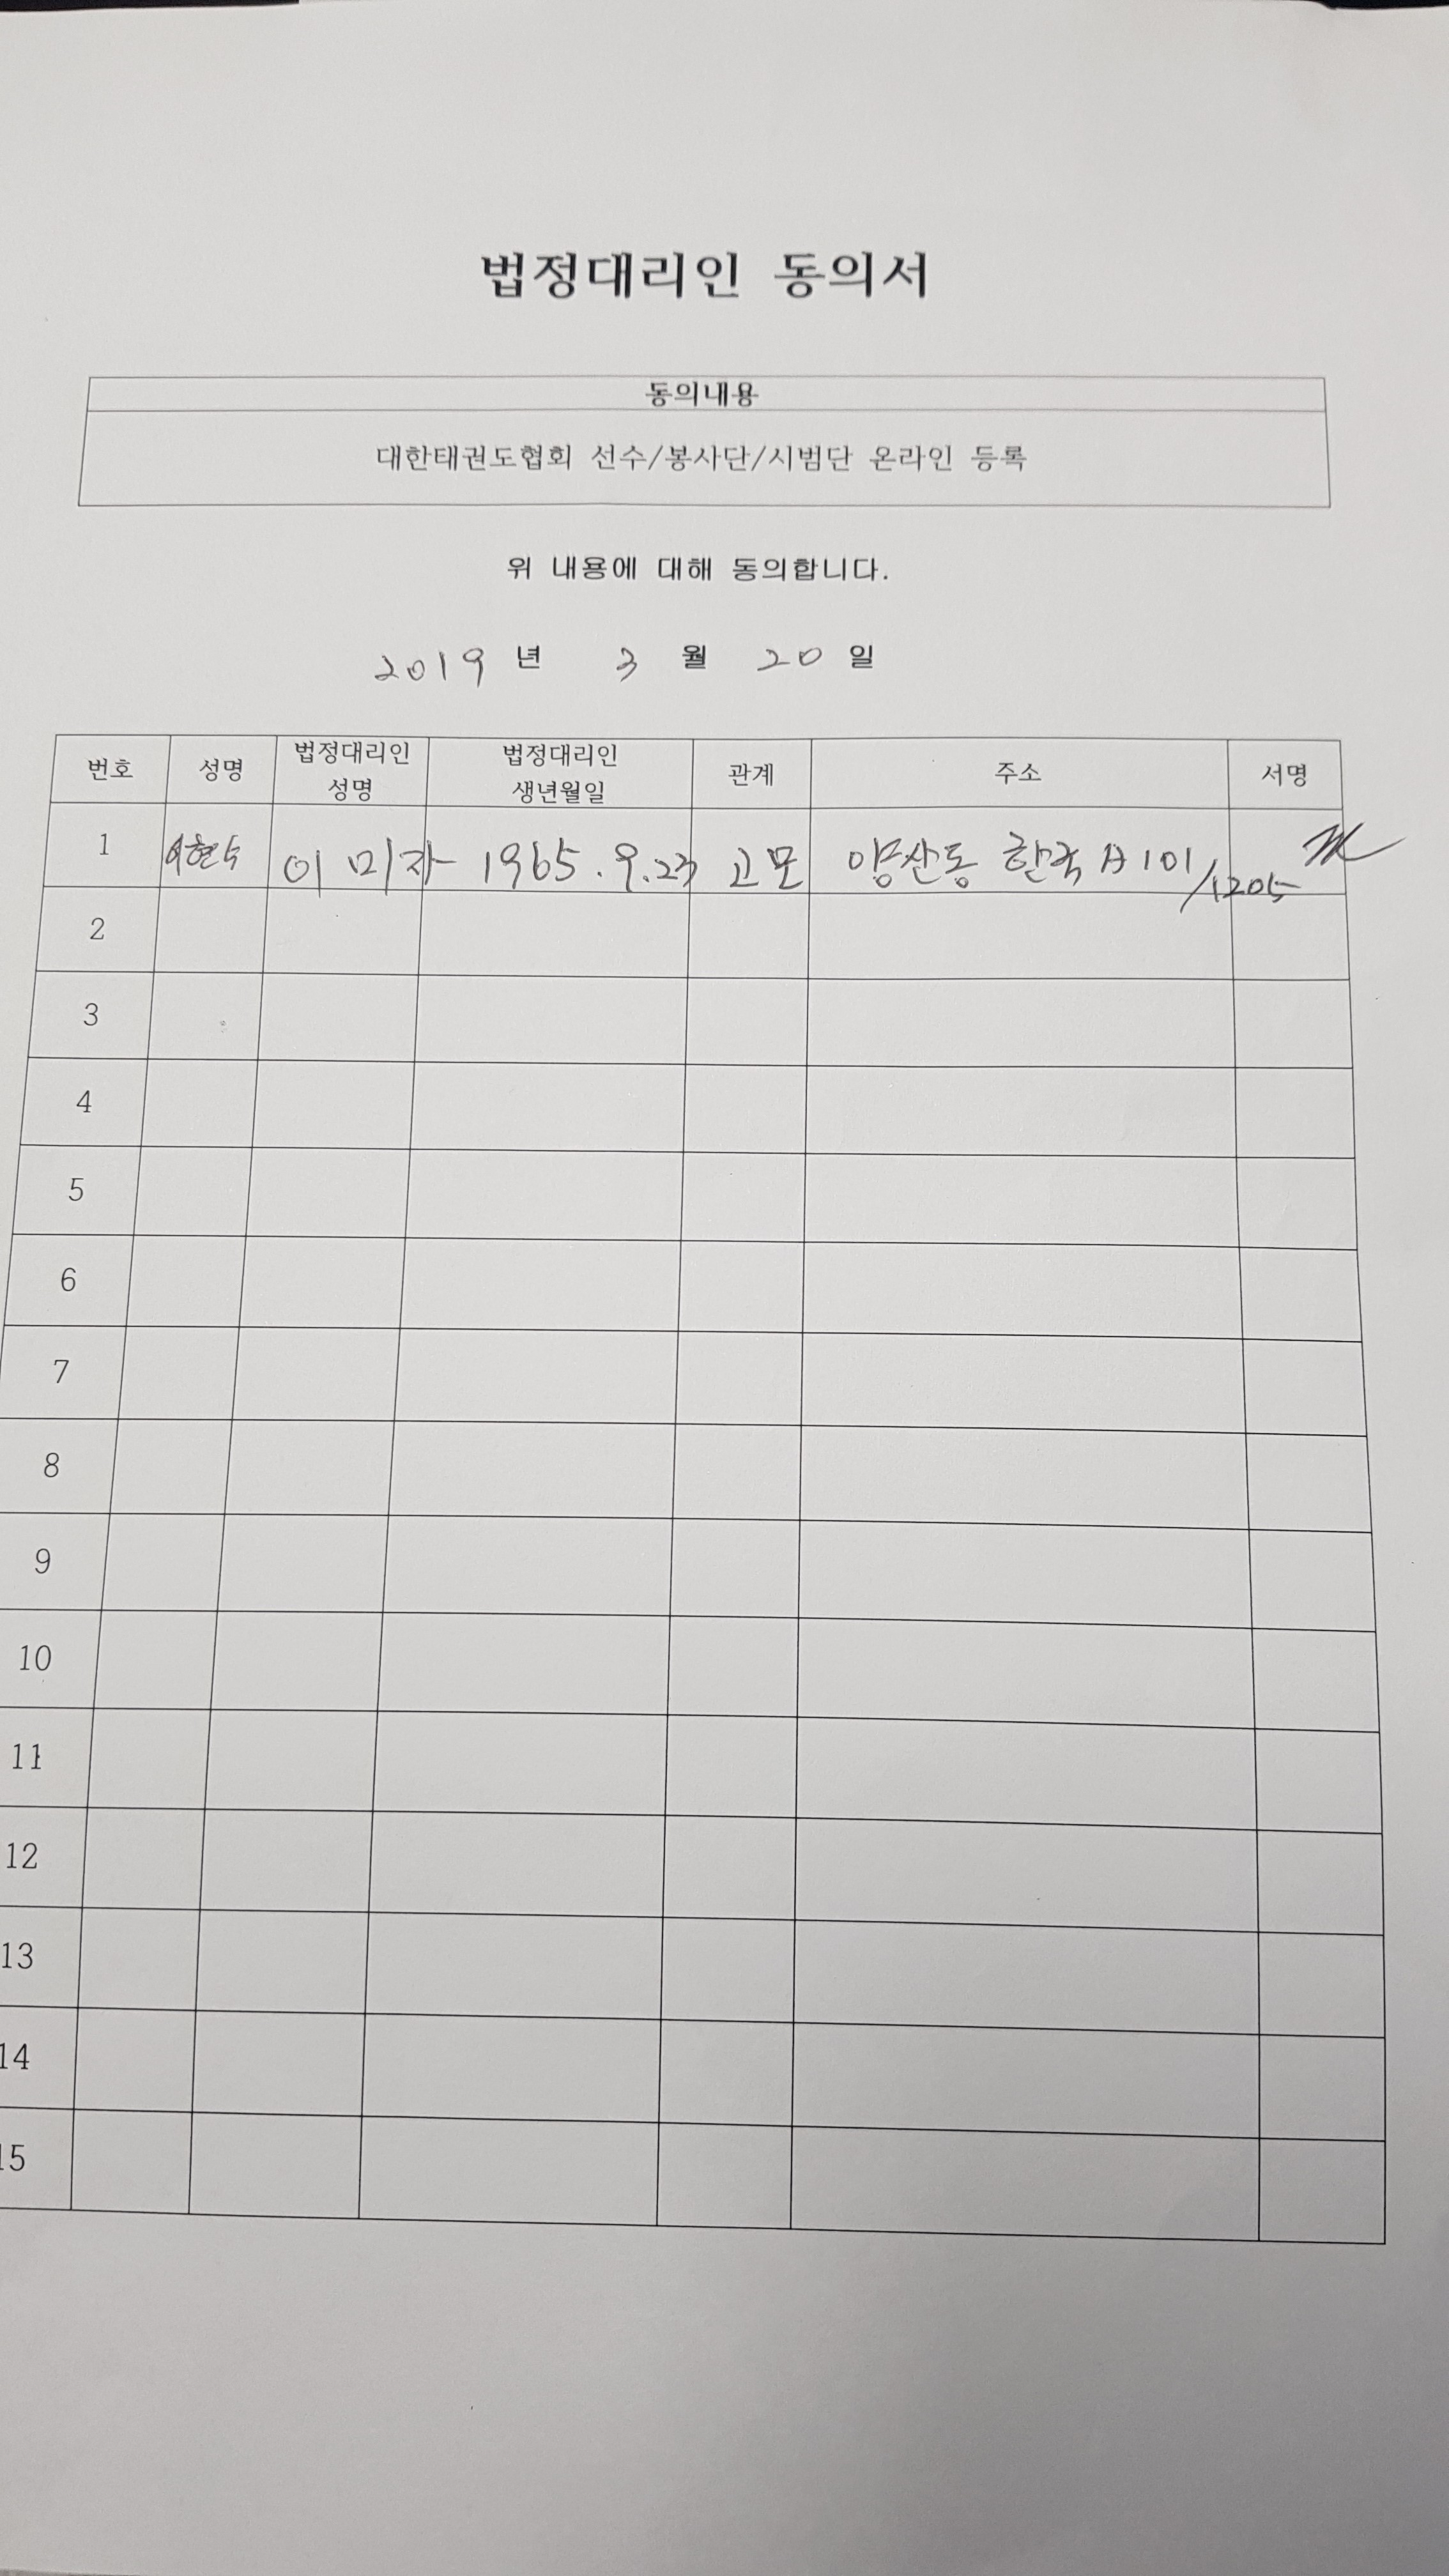 법정대리인 동의서
동의내용
대한태권도협회 선수/봉사단/시범단 온라인 등록
위 내용에 대해 동의합니다.
2019 년 3 월 20 일
번호 성명 법정대리인 성명 법정대리인 생년월일 관계 주소 서명
1 이현수 이미자 1965.9.23 고모 양산동 한국A 101/1205
2
3
4
5
6
7
8
9
10
11
12
13
14
15